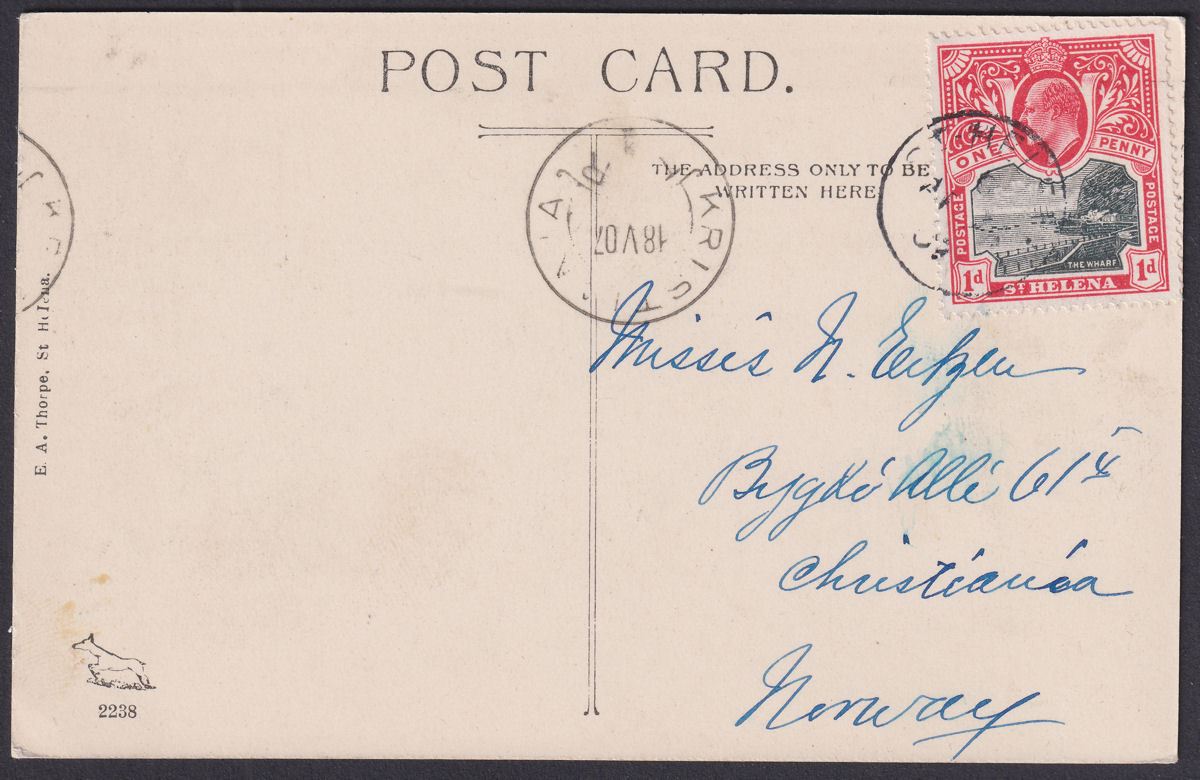 POST CARD.
THE ADDRESS ONLY TO BE
WRITTEN HERE.
ONE PENNY
POSTAGE
POSTAGE
THE WHARF
1d
ST HELENA
1d
KRISTIANIA
18 V 07
ST. HELE
E. A. Thorpe, St Helena.
Misses N.
Bygdö Allé 61
Christiania
Norway
2238